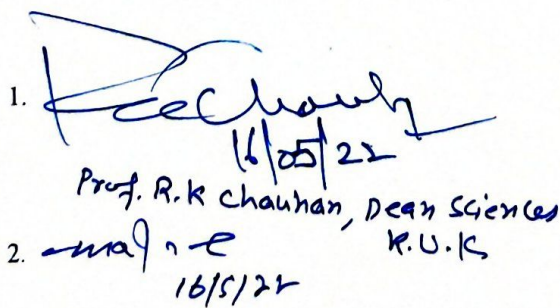 1. RKChauhan
16/05/22
Prof. R.K Chauhan, Dean Sciences
K.U.K
2.
16/5/22